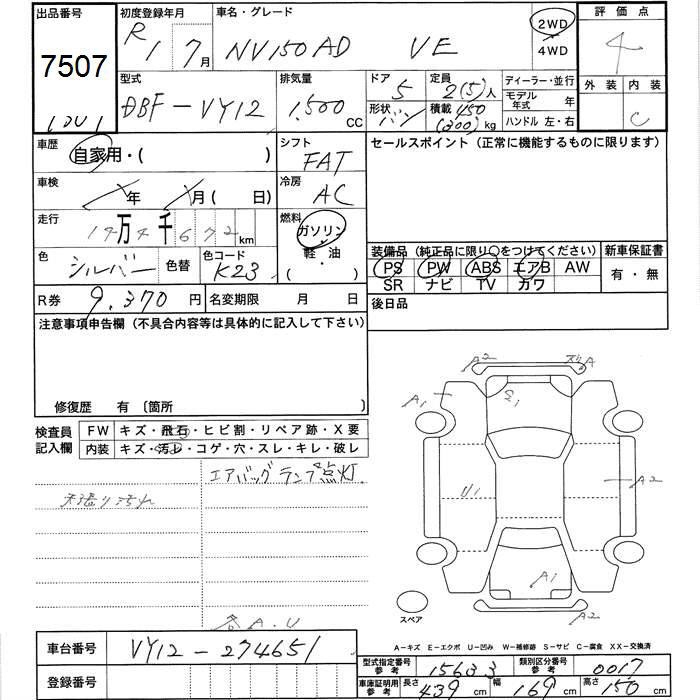 出品番号 初度登録年月 車名・グレード 評価点
7507 R1 7月 NV150AD VE 2WD 4WD 4
型式 排気量 ドア 定員 ディーラー・並行 外装 内装
DBF-VY12 1,500 CC 5 2(5)人 モデル年式 年 C
形状 バン 積載 450 (300) kg ハンドル 左・右
車歴 自家用・( ) シフト FAT セールスポイント（正常に機能するものに限ります）
車検 年 月( 日) 冷房 AC
走行 14万4千672km 燃料 ガソリン 軽・油 ( )
色 シルバー 色替 色コード K23
装備品（純正品に限り○をつけてください） 新車保証書
PS PW ABS エアB AW 有・無
SR ナビ TV カワ
R券 9,370円 名変期限 月 日 後日品
注意事項申告欄（不具合内容等は具体的に記入して下さい）
修復歴 有〔箇所 〕
検査員記入欄 FW キズ・飛石・ヒビ割・リペア跡・X要
内装 キズ・汚レ・コゲ・穴・スレ・キレ・破レ
エアバッグランプ点灯
天張り汚れ
各A.U
A2 A
A1
E1
U1 A2
A1
A2
スペア
A－キズ E－エクボ U－凹み W－補修跡 S－サビ C－腐食 XX－交換済
車台番号 VY12-274651
登録番号
型式指定番号 参考 15633 類別区分番号 参考 0017
車庫証明用 参考 長さ 439cm 幅 169cm 高さ 150cm